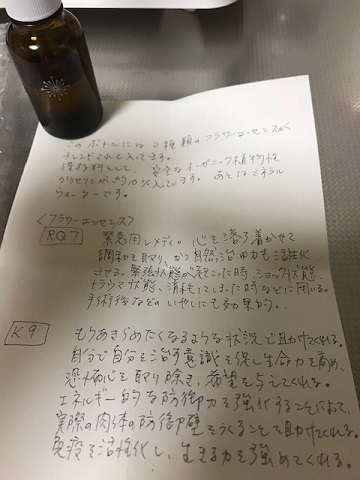 このボトルには2種類のフラワーエッセンスが
ブレンドされて入っています。
保存料として、安全なオーガニック植物性
グリセリンが約10%入っています。あとはミネラル
ウォーターです。
<フラワーエッセンス>
RQ7 緊急用レメディ。心を落ち着かせて
調和を取り、かつ自然治ゆ力も活性化
させる。緊張状態が起こった時、ショック状態、
トラウマ状態、消耗してしまった時などに用いる。
手術後などのいやしにも効果的。
K9 もうあきらめたくなるような状況で助けてくれる。
自分で自分を治す意識を促し生命力を高め、
恐怖心を取り除き、希望を与えてくれる。
エネルギー的な防御力を強化することによって、
実際の肉体の防御壁をつくることを助けてくれる。
免疫を活性化し、生きる力を強めてくれる。